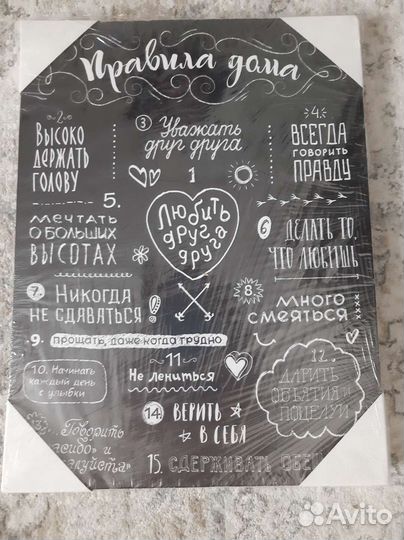 Правила дома
2.
Высоко
держать
голову
3 Уважать
друг друга
4.
Всегда
говорить
правду
1
Любить
друг
друга
5.
мечтать
о больших
высотах
6 делать то,
что любишь
7. Никогда
не сдаваться!
8.
много
смеяться
9. прощать, даже когда трудно
10. Начинать
каждый день
с улыбки
11
Не лениться
12.
Дарить
объятия и
поцелуи
Говорить
14 верить
в себя
15. сдерживать
Avito